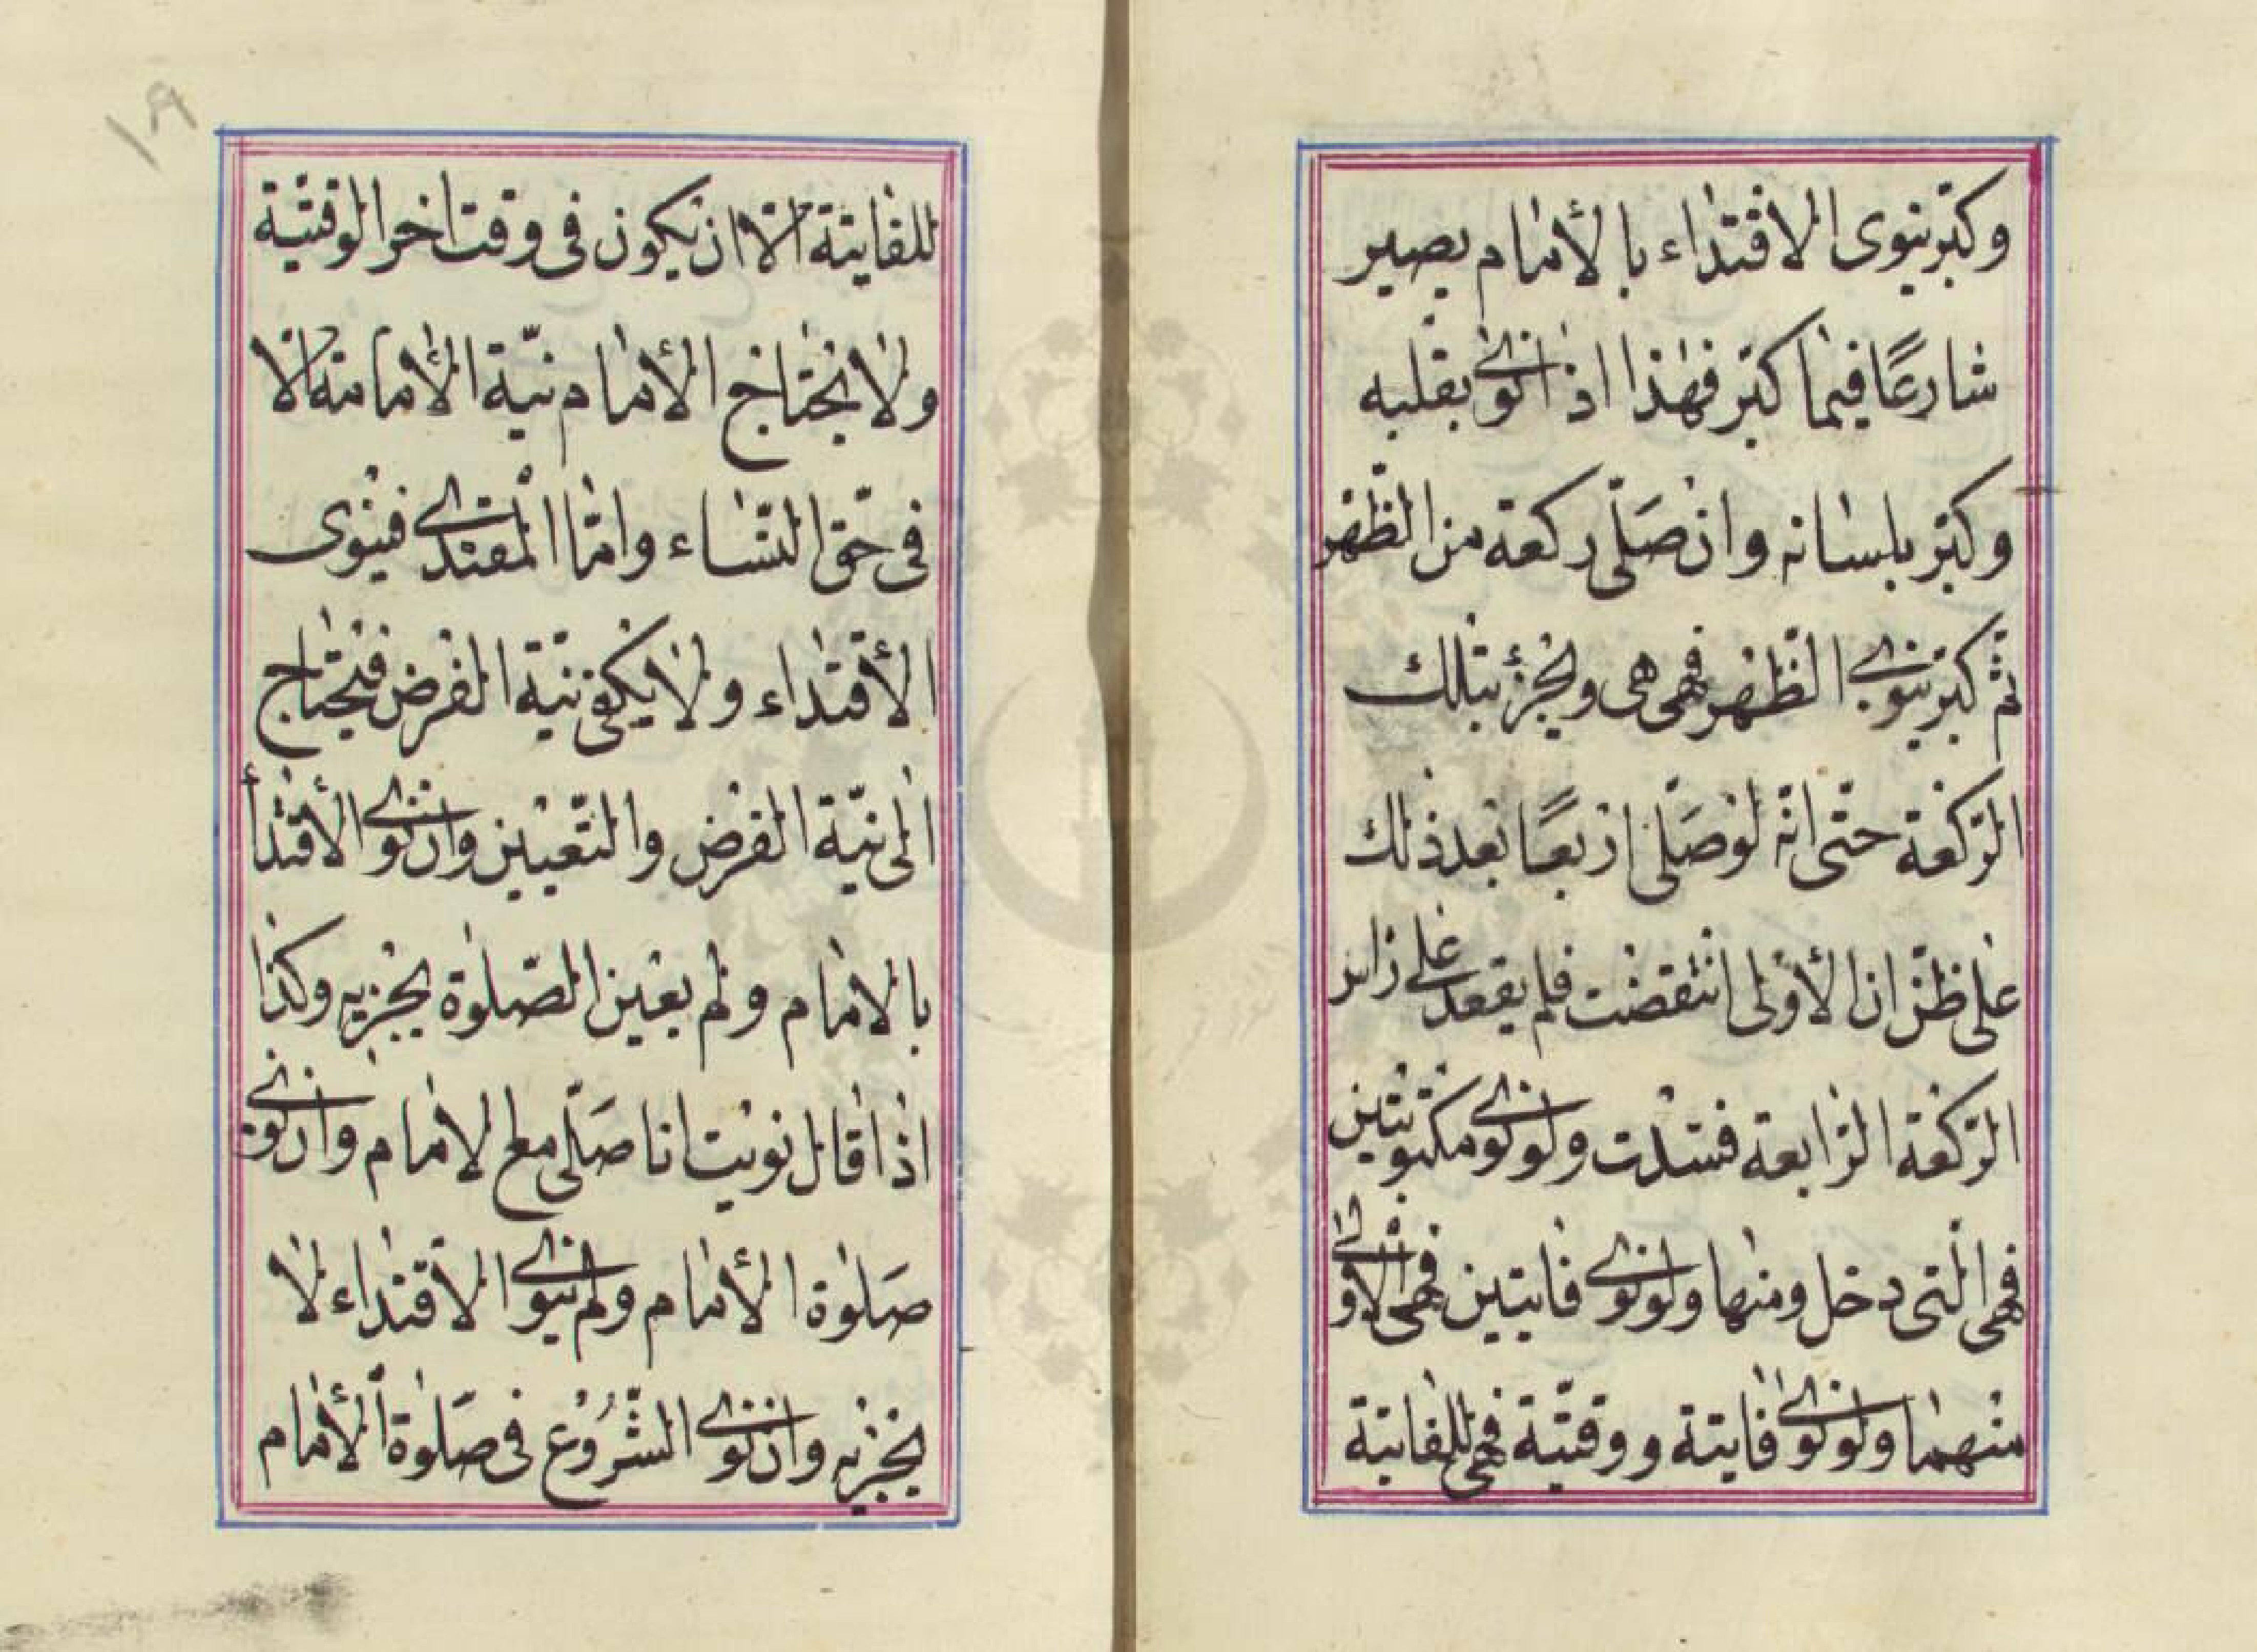 وكبّر ينوى الاقتداء بالأمام يصير
شارعًا فيما كبّر فهذا اذا نوى بقلبه
وكبّر بلسانه وان صَلّى ركعة من الظّهر
ثمّ كبّر ينوى الظّهر فهى هى ويجزئ بتلك
الرّكعة حتّى انّه لو صَلّى اربعًا بعد ذلك
على ظنّ ان الأولى انتقضت فلم يقعد على رأس
الرّكعة الرّابعة فسدت ولو نوى مكتوبتين
فهى الّتى دخل ومنها ولو نوى فايتين فهى الاولى
منهما ولو نوى فايتة ووقتيّة فهى للفايتة
١٩
للفايتة الّا ان يكون فى وقت اخر الوقتيّة
ولا يحتاج الأمام نيّة الأمامة الّا
فى حقّ النّساء وامّا المقتدى فينوى
الأقتداء ولا يكفى نيّة الفرض فيحتاج
الى نيّة الفرض والتّعيين وان نوى الأقتدأ
بالامام ولم يعين الصّلوة يجزيه وكذا
اذا قال نويت ان اصَلّى مع الامام وان نوى
صَلوة الأمام ولم ينوى الاقتداء لا
يجزيه وان نوى الشّروع فى صَلوة الأمام